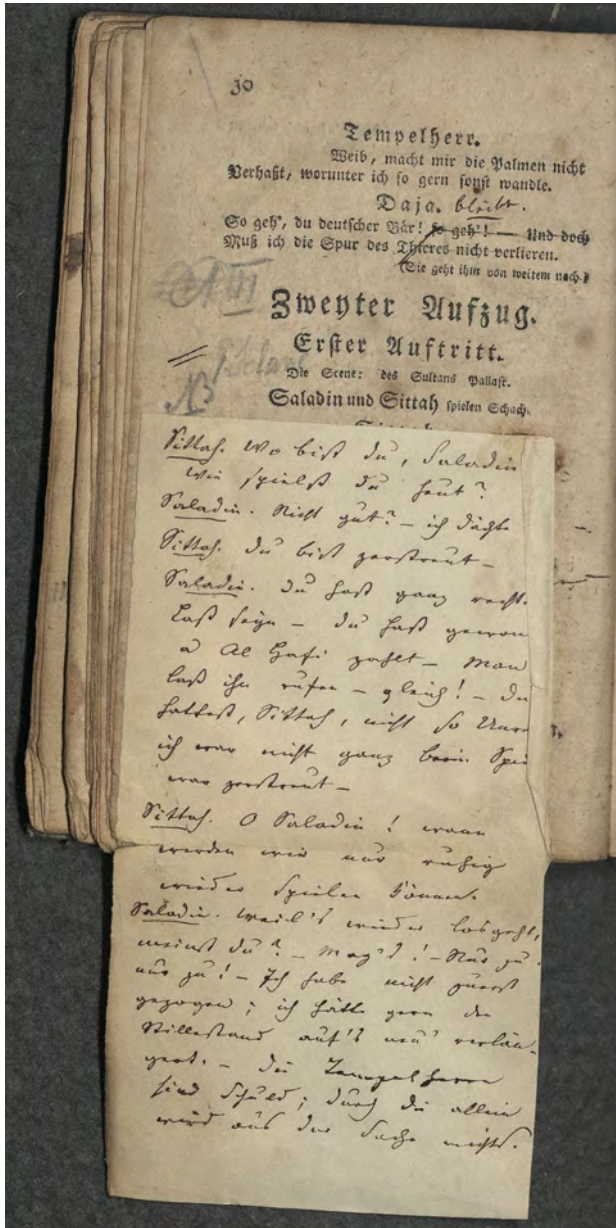 30
Tempelherr.
Weib, macht mir die Palmen nicht
Verhaßt, worunter ich so gern sonst wandle.
Daja. bleibt.
So geh', du deutscher Bär! so geh'! — Und doch
Muß ich die Spur des Thieres nicht verlieren.
(Sie geht ihm von weitem nach.)
Zweyter Aufzug.
Erster Auftritt.
Die Scene: des Sultans Pallast.
Saladin und Sittah spielen Schach.
Sittah. Wo bist du, Saladin
wie spielst du heut?
Saladin. Nicht gut? – ich dächte
Sittah. du bist zerstreut –
Saladin. du hast ganz recht.
Laß seyn – du hast gewon
Al Hafi zahlt – Man
laß ihn rufen – gleich! – Du
hattest, Sittah, nicht so Unre
ich war nicht ganz beim Spie
war zerstreut –
Sittah. O Saladin! wann
werden wir nur ruhig
wieder spielen können.
Saladin. Weil's wieder losgeht,
meinst du? – Mag's! – Nur zu
nur zu! – Ich habe nicht zuerst
gezogen; ich hätte gern den
Stillestand auf's neu' verlän-
gert. – die Tempelherrn
sind Schuld; durch die allein
wird aus der Sache nichts.